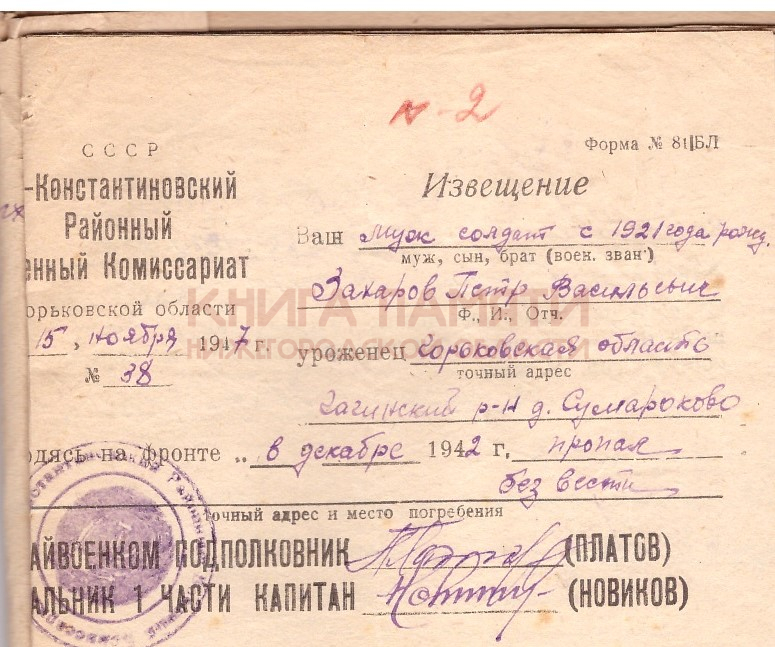 N-2
СССР
-Константиновский
Районный
енный Комиссариат
орьковской области
15, ноября 1947 г.
№ 38
Форма № 81 БЛ
Извещение
Ваш муж солдат с 1921 года рожд.
муж, сын, брат (воен. зван)
Захаров Петр Васильевич
Ф., И., Отч.
уроженец Горьковская область
точный адрес
р-н д. Сумароково
одясь на фронте „ в декабре 1942 г, пропал
без вести
очный адрес и место погребения
АЙВОЕНКОМ ПОДПОЛКОВНИК (ПЛАТОВ)
АЛЬНИК 1 ЧАСТИ КАПИТАН (НОВИКОВ)
КНИГА ПАМЯТИ
НИЖЕГОРОДСКОЙ ОБЛАСТИ